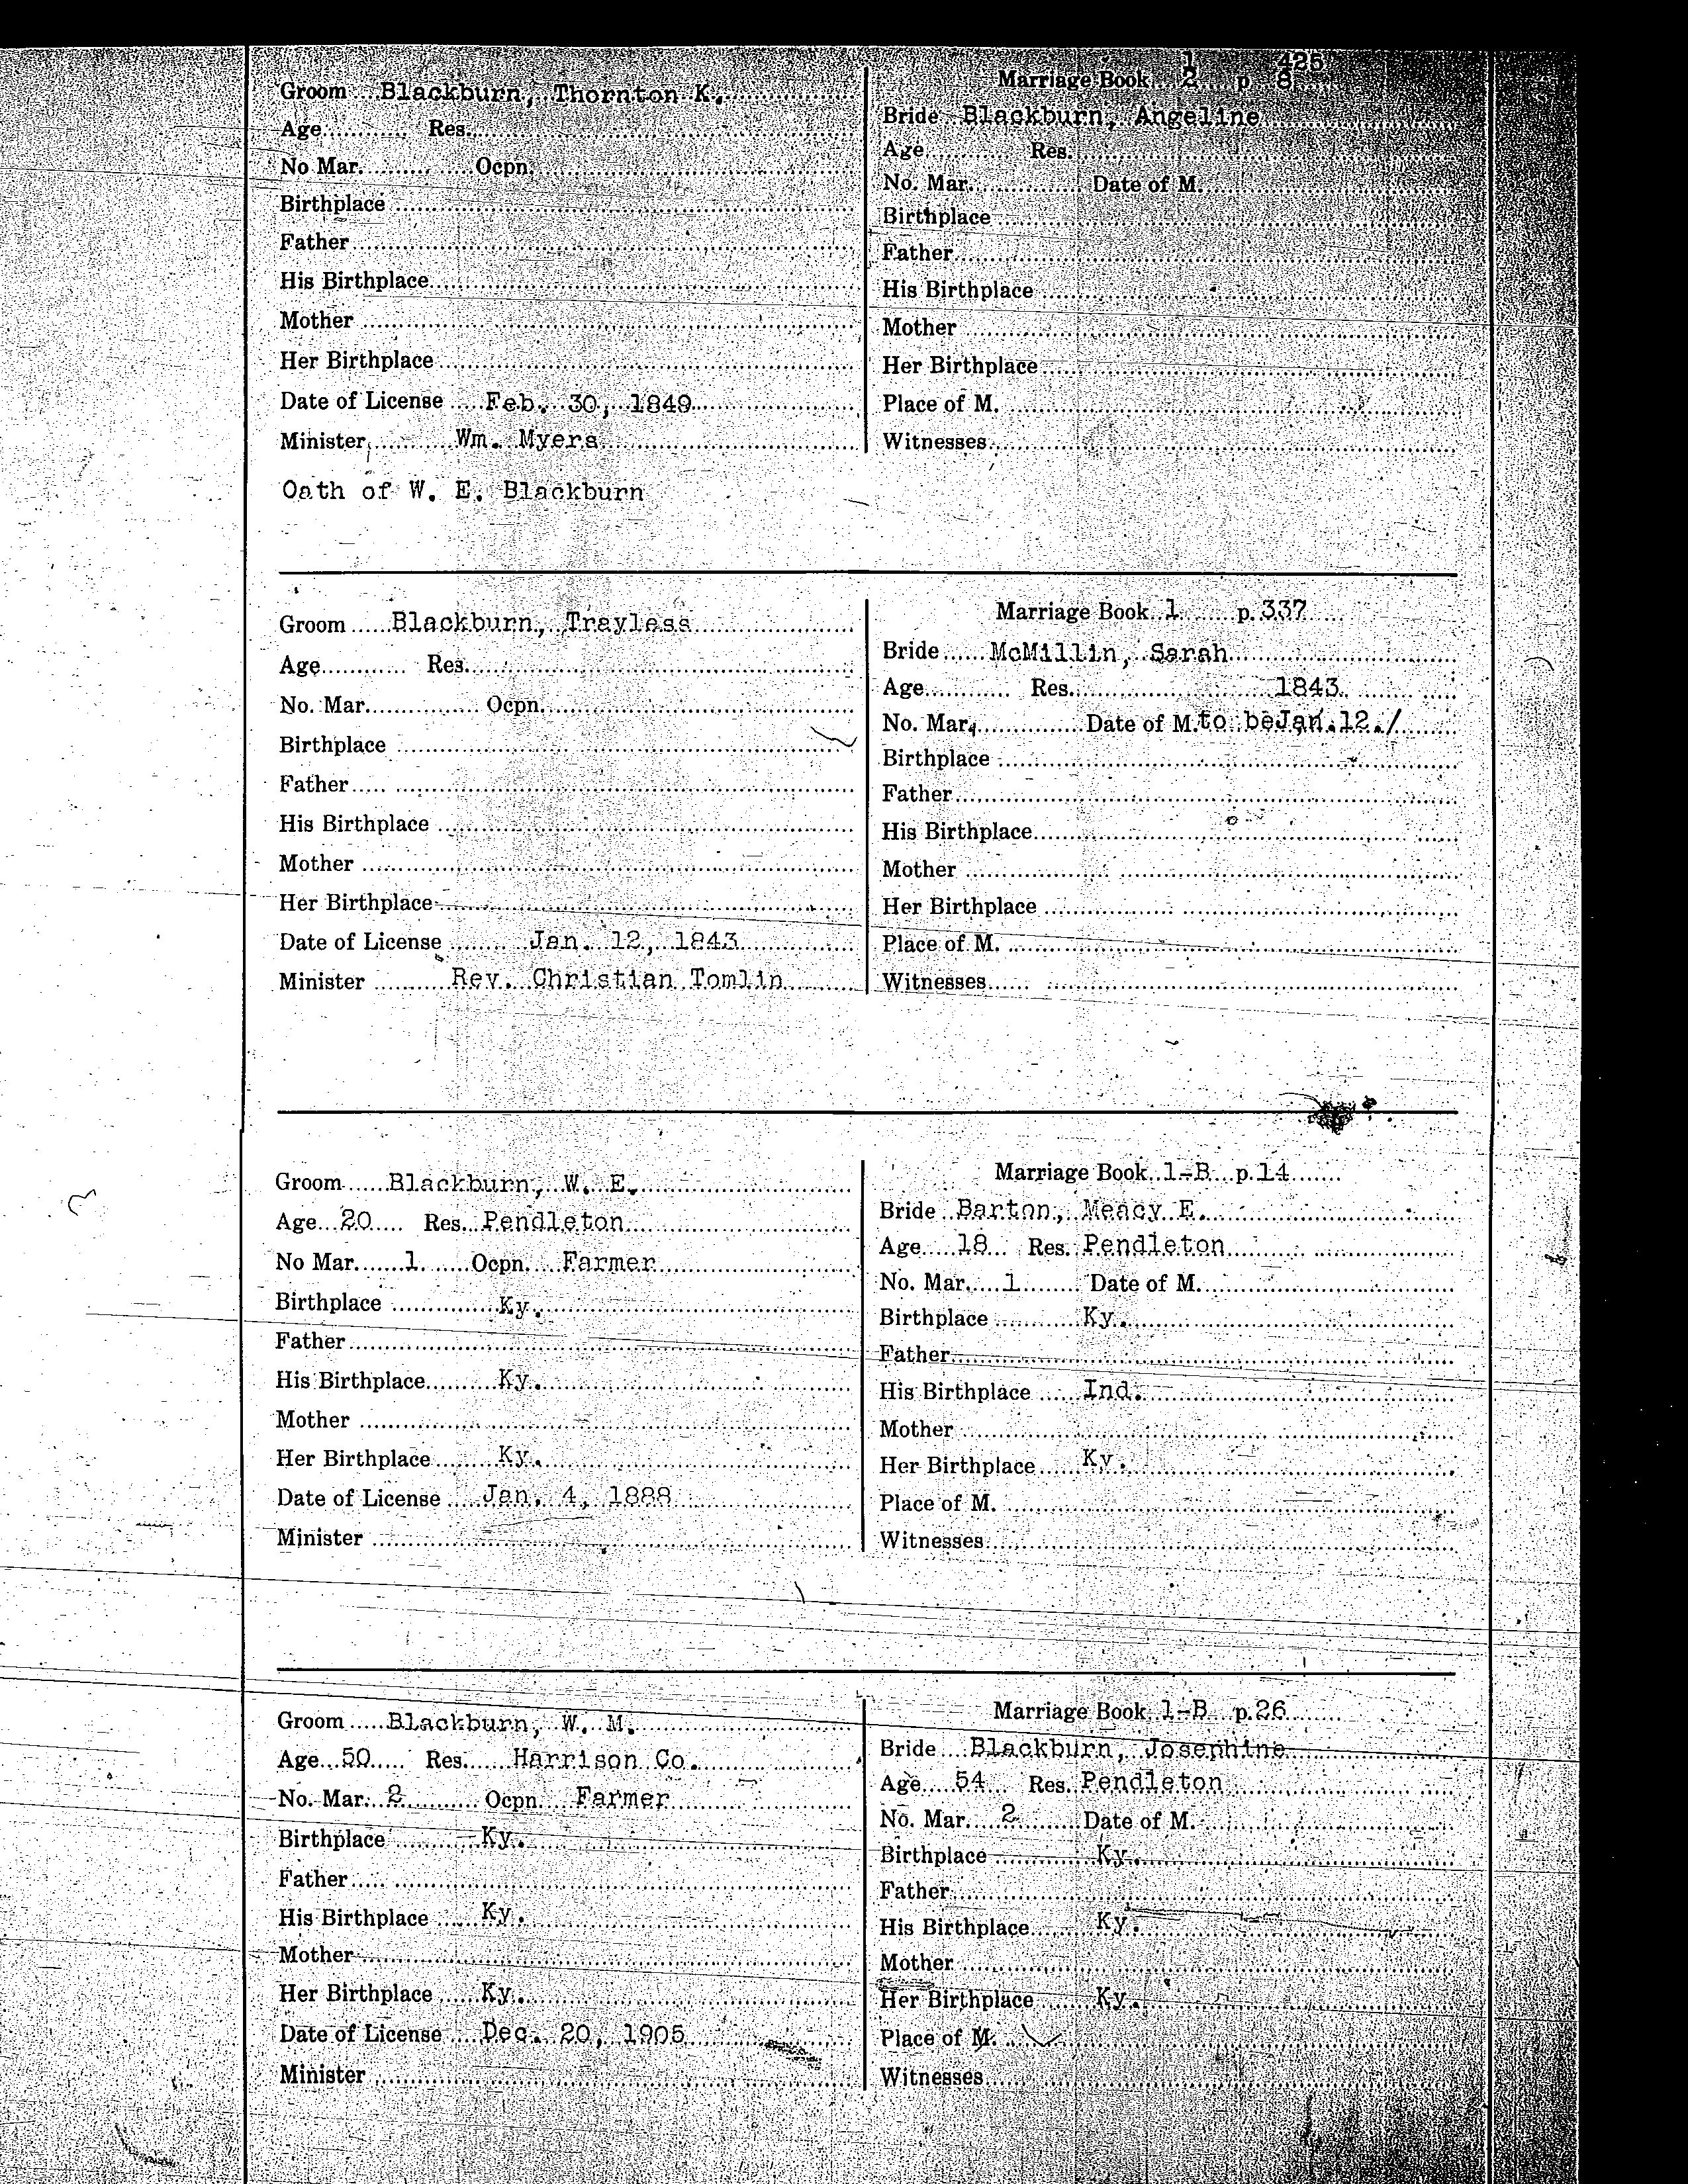 1 425
Groom Blackburn, Thornton K.
Age Res.
No Mar. Ocpn.
Birthplace
Father
His Birthplace
Mother
Her Birthplace
Date of License Feb. 30, 1849
Minister Wm. Myers
Oath of W. E. Blackburn
Marriage Book 2 p 8
Bride Blackburn, Angeline
Age Res.
No. Mar. Date of M.
Birthplace
Father
His Birthplace
Mother
Her Birthplace
Place of M.
Witnesses
Groom Blackburn, Trayless
Age Res.
No. Mar. Ocpn.
Birthplace
Father
His Birthplace
Mother
Her Birthplace
Date of License Jan. 12, 1843
Minister Rev. Christian Tomlin
Marriage Book 1 p. 337
Bride McMillin, Sarah
Age Res. 1843
No. Mar. Date of M. to be Jan. 12. /
Birthplace
Father
His Birthplace
Mother
Her Birthplace
Place of M.
Witnesses
Groom Blackburn, W. E.
Age 20 Res. Pendleton
No Mar. 1. Ocpn. Farmer
Birthplace Ky.
Father
His Birthplace Ky.
Mother
Her Birthplace Ky.
Date of License Jan. 4, 1888
Minister
Marriage Book 1-B p. 14
Bride Barton, Meacy E.
Age 18 Res. Pendleton
No. Mar. 1 Date of M.
Birthplace Ky.
Father
His Birthplace Ind.
Mother
Her Birthplace Ky.
Place of M.
Witnesses
Groom Blackburn, W. M.
Age 50 Res. Harrison Co.
No. Mar. 2 Ocpn. Farmer
Birthplace Ky.
Father
His Birthplace Ky.
Mother
Her Birthplace Ky.
Date of License Dec. 20, 1905
Minister
Marriage Book 1-B p. 26
Bride Blackburn, Josephine
Age 54 Res. Pendleton
No. Mar. 2 Date of M.
Birthplace Ky.
Father
His Birthplace Ky.
Mother
Her Birthplace Ky.
Place of M.
Witnesses